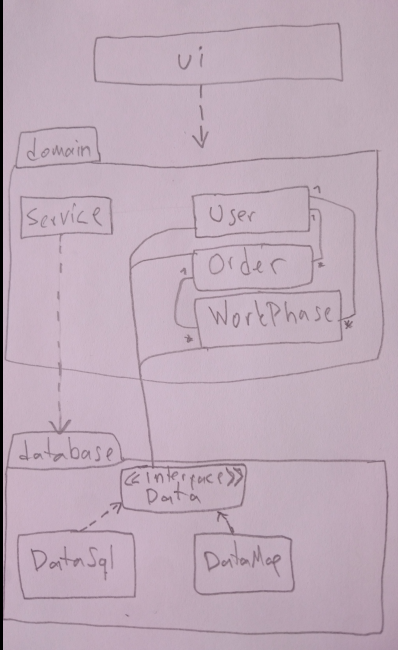 ui
domain
Service
User
1
1
Order
1
*
WorkPhase
*
*
database
<<interface>>
Data
DataSql
DataMap